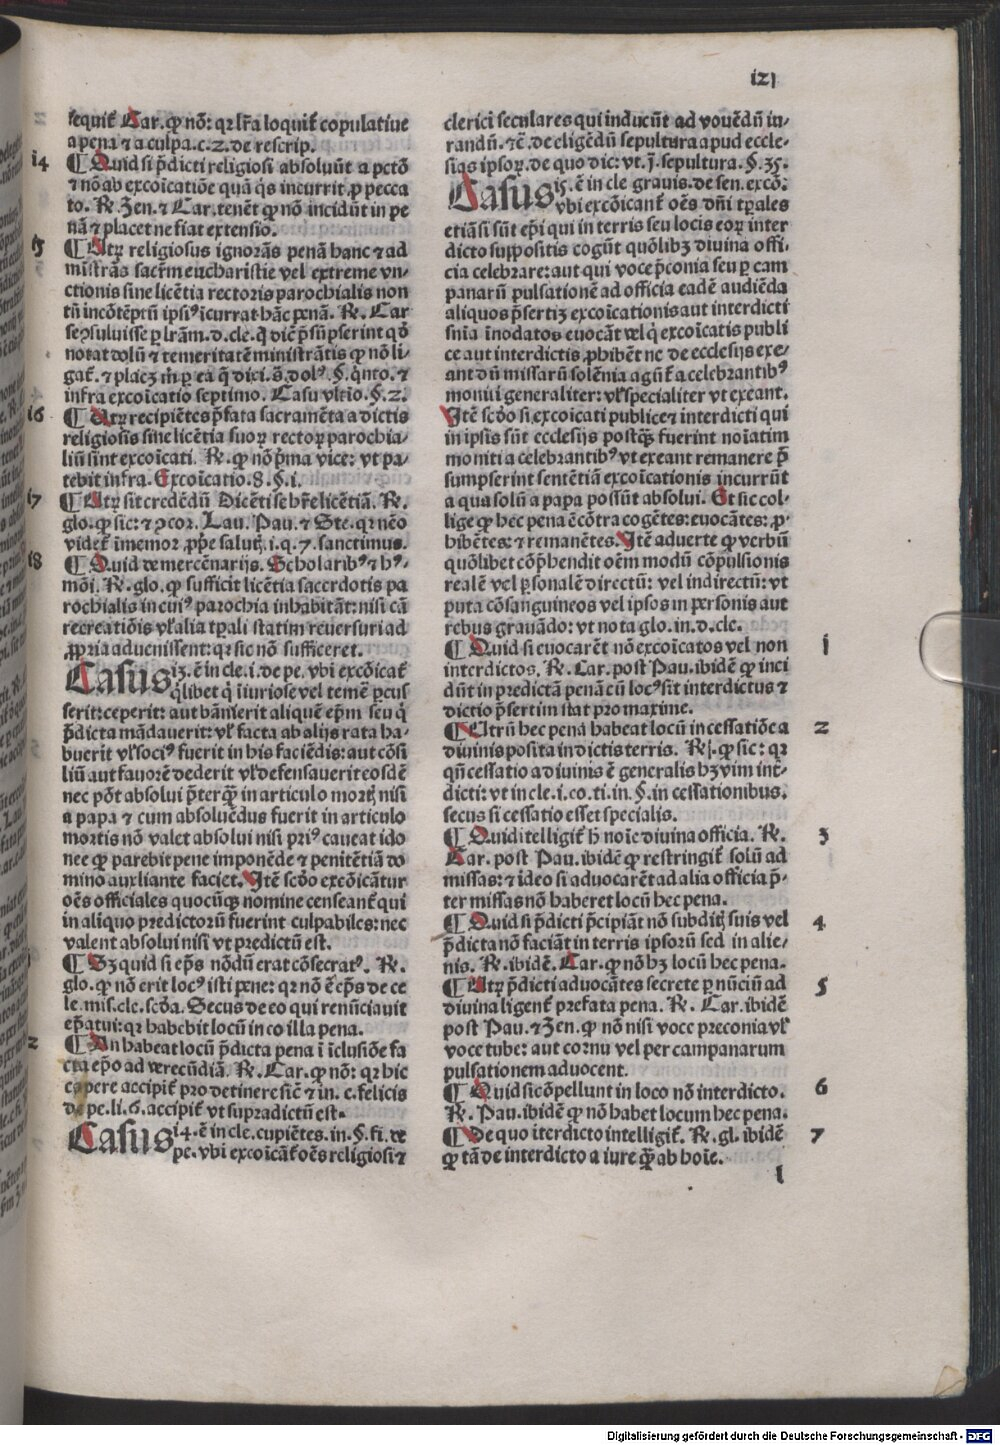 i2j
sequit᷑ Car. ꝙ nō: qꝛ lr̄a loquit᷑ copulatiue
a pena ⁊ a culpa.c.2.de rescrip.
i4
¶ Quid si p̄dicti religiosi absoluūt a pctō
⁊ nō ab excoīcatiōe quā q̇s incurrit ꝓ pecca
to. R̄. Zen.⁊ Car. tenēt ꝙ nō incidūt in pe
nā ⁊ placet ne fiat extensio.
i5
¶ Utꝝ religiosus ignorās penā hanc ⁊ ad
mīstrās sacr̄m eucharistie vel extreme vn⸗
ctionis sine licētia rectoris parochialis non
tn̄ incōtēptū ipsiꝰ īcurrat hāc penā. R̄. Car
se ꝯsuluisse ꝑ lr̄am.d.cle.q̇ dic̄ p̄sūpserint qd̄
notat dolū ⁊ temeritatē ministrātis ꝙ nō li⸗
gat᷑. ⁊ placꝫ m̄ ꝑ ea q̄ dixi.s̄.dolꝰ.§.q̇nto.⁊
infra excoīcatio septimo. Casu vltīo.§.2.
i6
¶ Utꝝ recipiētes p̄fata sacramēta a dictis
religiosis sine licētia suoꝝ rectoꝝ parochia⸗
liū sint excoīcati. R̄. ꝙ nō p̄ma vice: vt pa⸗
tebit infra. Excoīcatio.8.§.i.
i7
¶ Utꝝ sit credēdū Dicēti se hr̄e licētiā. R̄.
glo. ꝙ sic: ⁊ ꝯcor. Lau. Pau.⁊ Ste. qꝛ nēo
videt᷑ īmemor ꝓp̄e salutꝭ.i.q.7.sanctimus.
i8
¶ Quid de mercēnarijs. Scholaribꝰ ⁊ hꝰ⸗
mōi. R̄. glo. ꝙ sufficit licētia sacerdotis pa
rochialis in cuiꝰ parochia inhabitāt: nisi cā
recreatiōis vl̓ alia tꝑali statim reuersuri ad
ꝓpria aduenissent: qꝛ sic nō sufficeret.
Casus i3.ē in cle.i.de pe.vbi excōicat᷑
q̇libet q̇ īiuriose vel temē ꝑcus
serit: ceperit: aut bānierit aliquē ep̄m seu q̇
p̄dicta mādauerit: vl̓ facta ab alijs rata ha⸗
buerit vl̓ sociꝰ fuerit in his faciēdis: aut cōsi
liū aut fauorē dederit vl̓ defensauerit eosdē
nec pōt absolui p̄terꝙ̄ in articulo mortꝭ nisi
a papa ⁊ cum absoluēdus fuerit in articulo
mortis nō valet absolui nisi priꝰ caueat ido
nee ꝙ parebit pene imponēde ⁊ penitētiā do
mino auxliante faciet. Itē scd̄o excōicātur
oēs officiales quocūqꝫ nomine censeant᷑ qui
in aliquo predictoꝝ fuerint culpabiles: nec
valent absolui nisi vt predictū est.
i
¶ Sꝫ quid si ep̄s nōdū erat cōsecratꝰ. R̄.
glo. ꝙ nō erit locꝰ isti pene: qꝛ nō ē ep̄s de ce
le.mis.cle.scd̄a. Secus de eo qui renūciauit
ep̄atui: qꝛ habebit locū in eo illa pena.
2
¶ An habeat locū p̄dicta pena ī īclusiōe fa
cta ep̄o ad verecūdiā. R̄. Car. ꝙ nō: qꝛ hic
capere accipit᷑ pro detinere sic̄ ⁊ in.c.felicis
de pe.li.6.accipit᷑ vt supradictū est.
Casus i4.ē in cle.cupiētes.in.§.fi.de
pe.vbi excoīcāt᷑ oēs religiosi ⁊
clerici seculares qui inducūt ad vouēdū iu⸗
randū.⁊c̄.de eligēdū sepultura apud eccle⸗
sias ipsoꝝ.de quo dic: vt.j̄.sepultura.§.35.
Casus i5.ē in cle grauis.de sen.excō:
vbi excōicant᷑ oēs dn̄i tꝑales
etiā si sūt ep̄i qui in terris seu locis eoꝝ inter
dicto suppositis cogūt quōlibꝫ diuina offi⸗
cia celebrare: aut qui voce p̄conia seu ꝑ cam
panarū pulsationē ad officia eadē audiēda
aliquos p̄sertiꝫ excōicationis aut interdicti
sn̄ia īnodatos euocāt vel q̇ excoīcatis publi
ce aut interdictis ꝓhibēt ne de ecclesijs exe⸗
ant dū missarū solēnia agūt᷑ a celebrantibꝰ
moniti generaliter: vl̓ specialiter vt exeant.
Itē scd̄o si excoīcati publice ⁊ interdicti qui
in ipsis sūt ecclesijs postꝙ̄ fuerint noīatim
moniti a celebrantibꝰ vt exeant remanere p̄
sumpserint sentētiā excoīcationis incurrūt
a qua solū a papa possūt absolui. Et sic col⸗
lige ꝙ hec pena ē cōtra cogētes: euocātes: ꝓ⸗
hibētes: ⁊ remanētes. Itē aduerte ꝙ verbū
quōlibet cōp̄hendit oēm modū cōpulsionis
realē vel ꝑsonalē directū: vel indirectū: vt
puta cōsanguineos vel ipsos in personis aut
rebus grauādo: vt nota glo.in.d.cle.
i
¶ Quid si euocarēt nō excoīcatos vel non
interdictos. R̄. Car. post Pau. ibidē ꝙ inci
dūt in predictā penā cū locꝰ sit interdictus ⁊
dictio p̄sertim stat pro maxime.
2
¶ Utrū hec pena habeat locū in cessatiōe a
diuinis posita in dictis terris. R̄. ꝙ sic: qꝛ
qn̄ cessatio a diuinis ē generalis hꝫ vim int̄⸗
dicti: vt in cle.i.co.ti.in.§.in cessationibus.
secus si cessatio esset specialis.
3
¶ Quid ītelligit᷑ h̄ noīe diuina officia. R̄.
Car. post Pau. ibidē ꝙ restringit᷑ solū ad
missas: ⁊ ideo si aduocarēt ad alia officia p̄⸗
ter missas nō haberet locū hec pena.
4
¶ Quid si p̄dicti p̄cipiāt nō subditꝭ suis vel
p̄dicta nō faciāt in terris ipsorū sed in alie⸗
nis. R̄. ibidē. Car. ꝙ nō hꝫ locū hec pena.
5
¶ Utꝝ p̄dicti aduocātes secrete ꝑ nūciū ad
diuina ligent᷑ prefata pena. R̄. Car. ibidē
post Pau.⁊ Zen. ꝙ nō nisi voce preconia vl̓
voce tube: aut cornu vel per campanarum
pulsationem aduocent.
6
¶ Quid si cōpellunt in loco nō interdicto.
R̄. Pau. ibidē ꝙ nō habet locum hec pena.
7
¶ De quo īterdicto intelligit᷑. R̄. gl. ibidē
ꝙ tā de interdicto a iure ꝙ̄ ab hoīe.
l
Digitalisierung gefördert durch die Deutsche Forschungsgemeinschaft - DFG